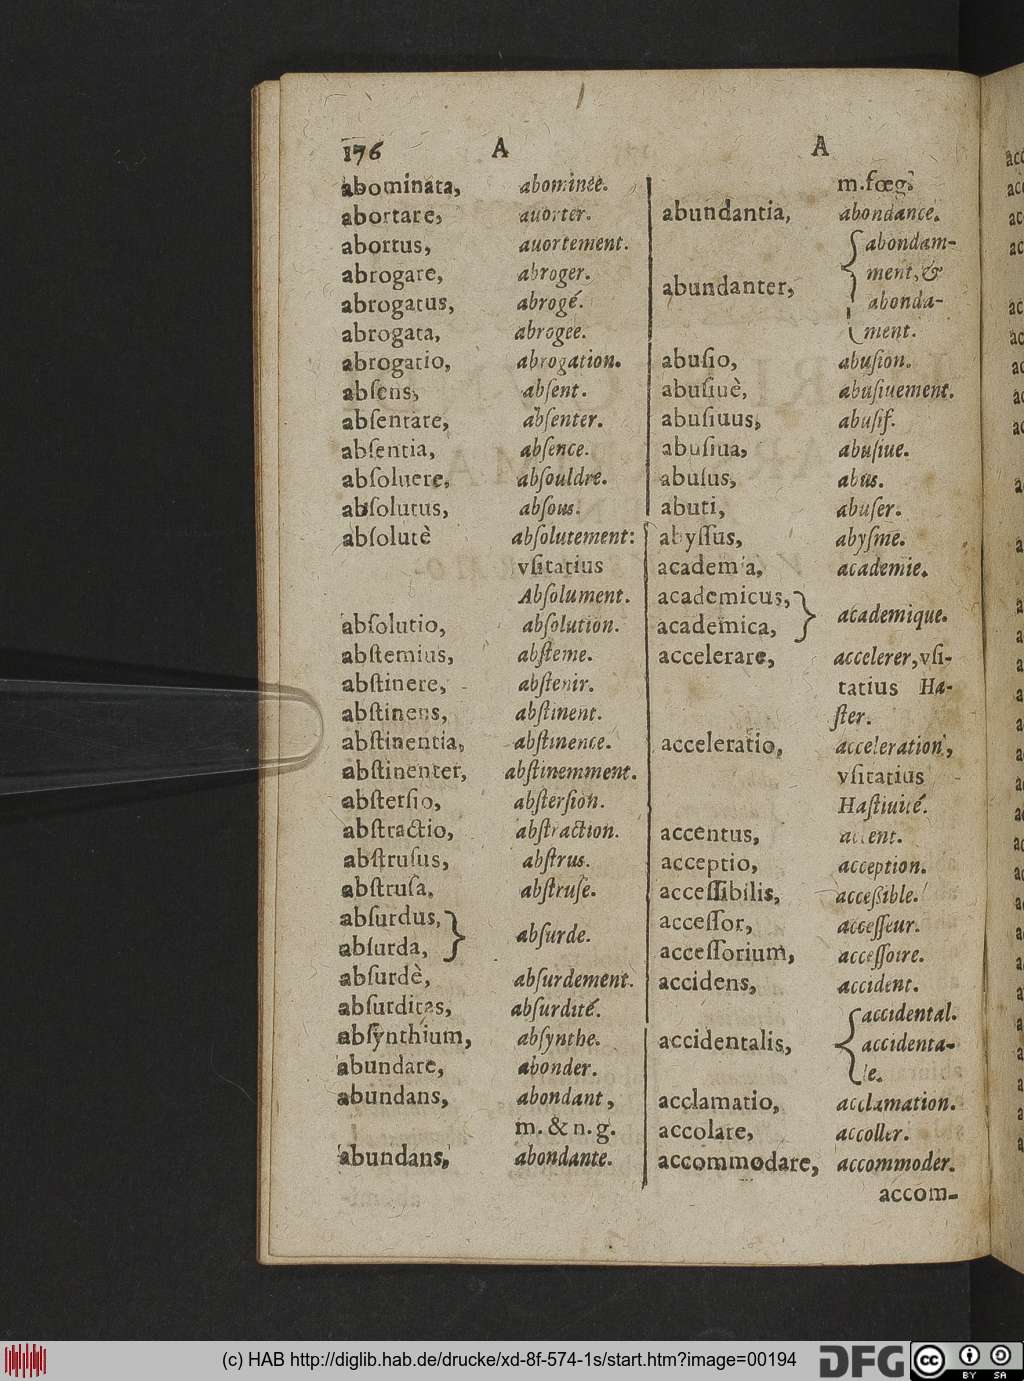 176 A A
abominata, abominée.
abortare, auorter.
abortus, auortement.
abrogare, abroger.
abrogatus, abrogé.
abrogata, abrogee.
abrogatio, abrogation.
abſens, abſent.
abſentare, abſenter.
abſentia, abſence.
abſoluere, abſouldre.
abſolutus, abſous.
abſolutè abſolutement:
vſitatius
Abſolument.
abſolutio, abſolution.
abſtemius, abſteme.
abſtinere, abſtenir.
abſtinens, abſtinent.
abſtinentia, abſtinence.
abſtinenter, abſtinemment.
abſterſio, abſterſion.
abſtractio, abſtraction.
abſtruſus, abſtrus.
abſtruſa, abſtruſe.
abſurdus,
abſurda, } abſurde.
abſurdè, abſurdement.
abſurditas, abſurdité.
abſynthium, abſynthe.
abundare, abonder.
abundans, abondant,
m. & n. g.
abundans, abondante.
m. fœg.
abundantia, abondance.
abundanter, { abondam-
ment, &
abonda-
ment.
abuſio, abuſion.
abuſiuè, abuſiuement.
abuſiuus, abuſif.
abuſiua, abuſiue.
abuſus, abus.
abuti, abuſer.
abyſſus, abyſme.
academia, academie.
academicus,
academica, } academique.
accelerare, accelerer, vſi-
tatius Ha-
ſter.
acceleratio, acceleration,
vſitatius
Haſtiuité.
accentus, accent.
acceptio, acception.
acceſſibilis, acceßible.
acceſſor, acceſſeur.
acceſſorium, acceſſoire.
accidens, accident.
accidentalis, { accidental.
accidenta-
le.
acclamatio, acclamation.
accolare, accoller.
accommodare, accommoder.
accom-
(c) HAB http://diglib.hab.de/drucke/xd-8f-574-1s/start.htm?image=00194
DFG
cc BY SA